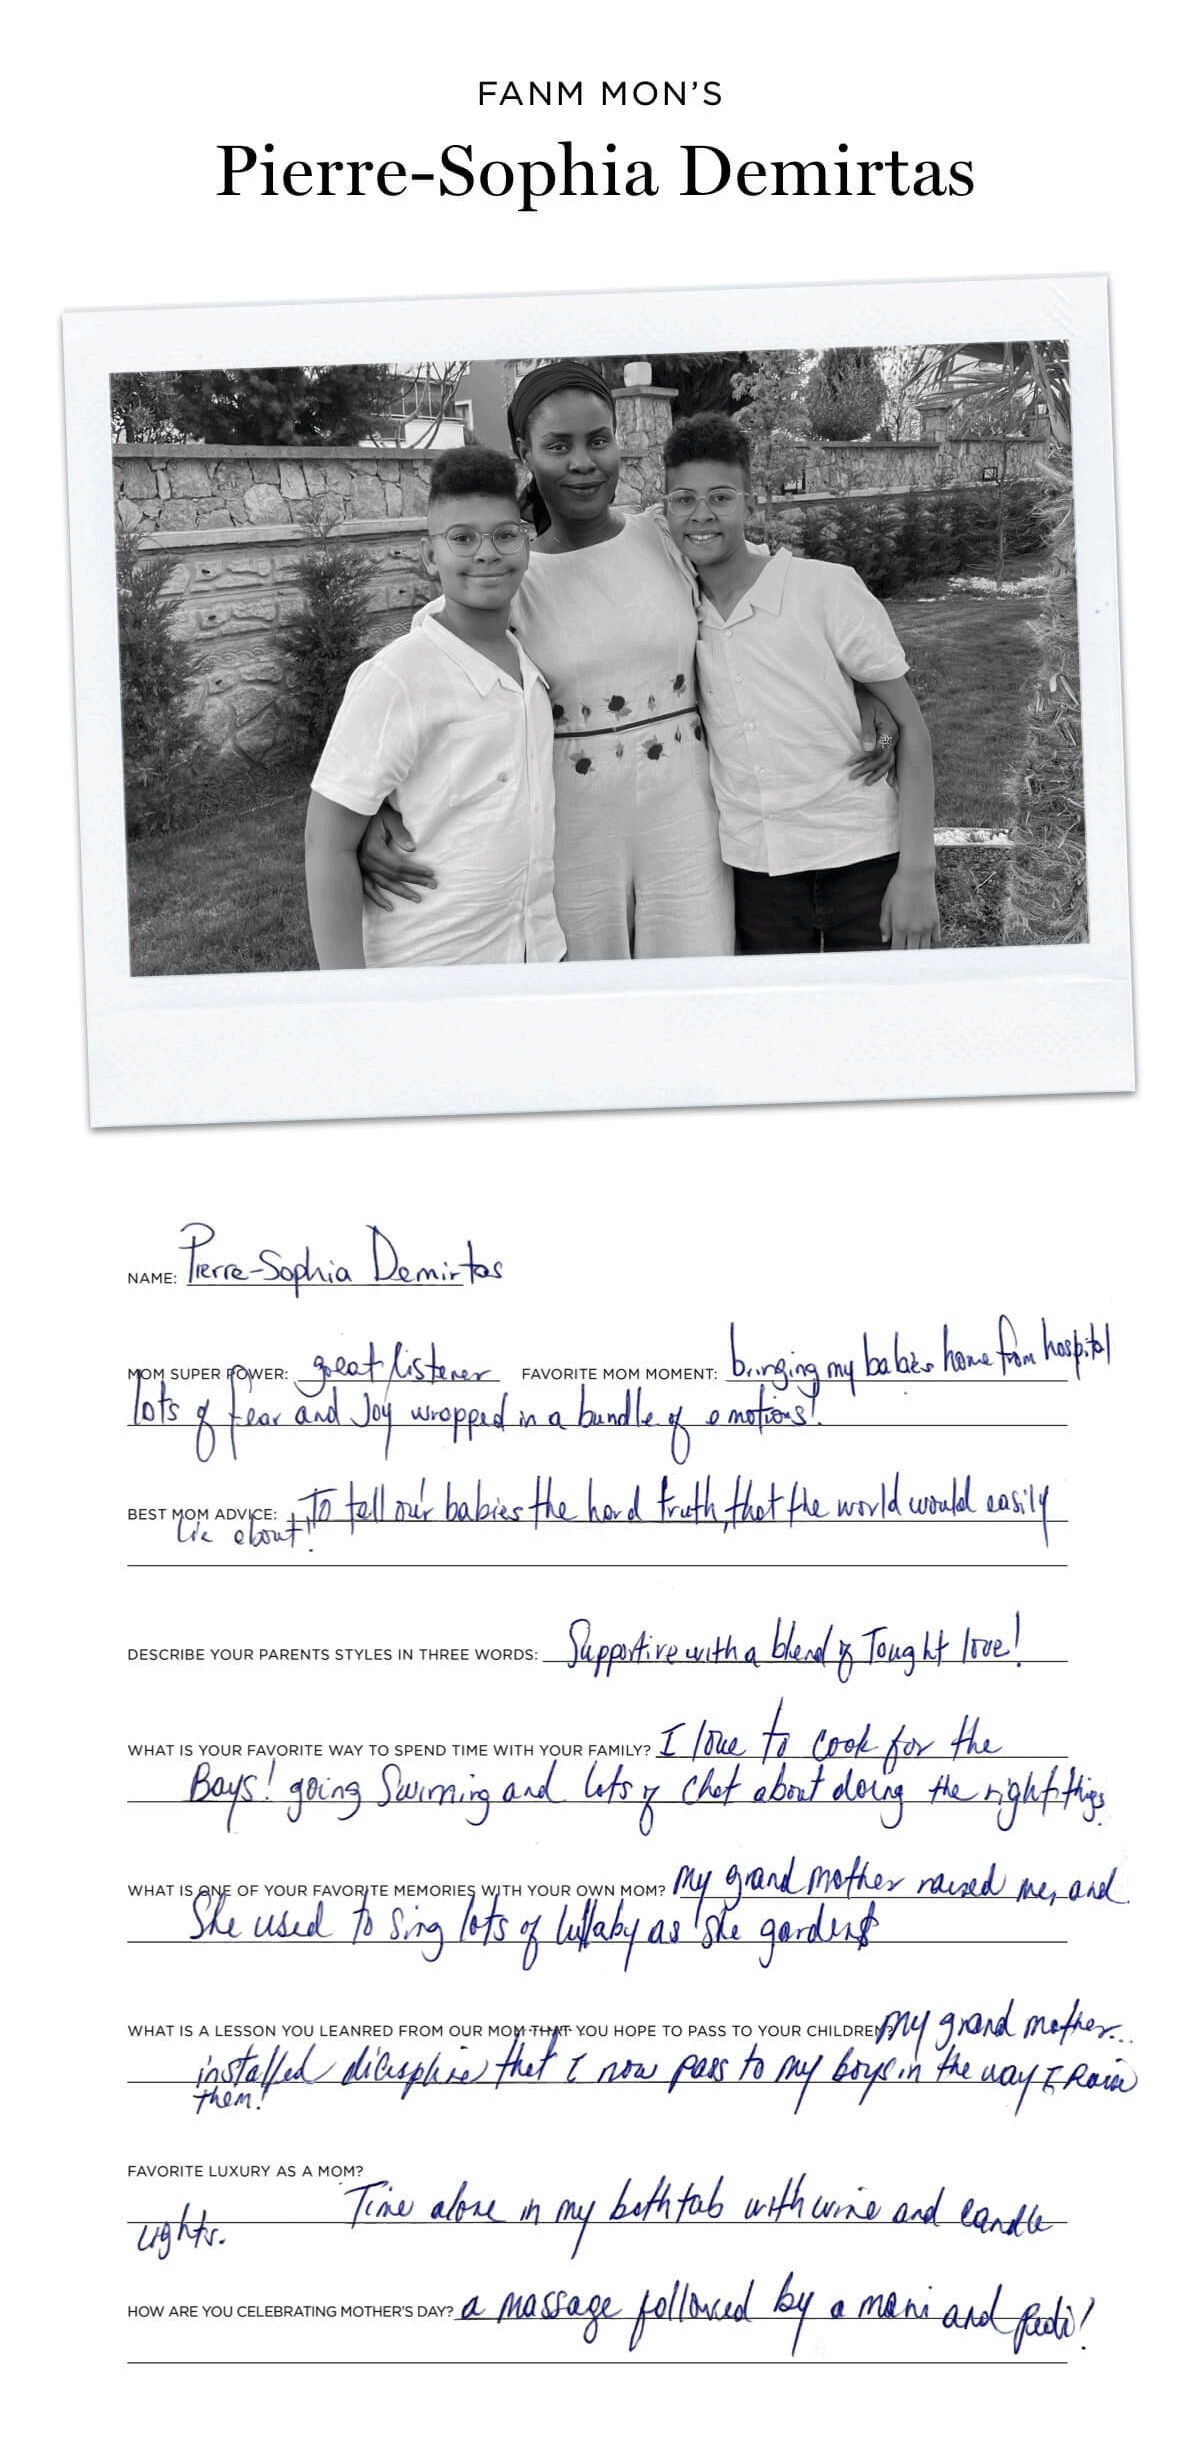 FANM MON'S
Pierre-Sophia Demirtas
NAME: Pierre-Sophia Demirtas
MOM SUPER POWER: great listener FAVORITE MOM MOMENT: bringing my babies home from hospital
lots of fear and Joy wrapped in a bundle of emotions!
BEST MOM ADVICE: "To tell our babies the hard truth, that the world would easily
lie about"!
DESCRIBE YOUR PARENTS STYLES IN THREE WORDS: Supportive with a blend of Tought love!
WHAT IS YOUR FAVORITE WAY TO SPEND TIME WITH YOUR FAMILY? I love to cook for the
Boys! going Swimming and lots of chat about doing the right things.
WHAT IS ONE OF YOUR FAVORITE MEMORIES WITH YOUR OWN MOM? My grand mother raised me, and
She used to sing lots of lullaby as she gardens
WHAT IS A LESSON YOU LEANRED FROM OUR MOM THAT YOU HOPE TO PASS TO YOUR CHILDREN? My grand mother...
installed that I now pass to my boys in the way I Raise
them!
FAVORITE LUXURY AS A MOM?
Time alone in my bathtub with wine and candle
lights.
HOW ARE YOU CELEBRATING MOTHER'S DAY? a massage followed by a mani and pedi!